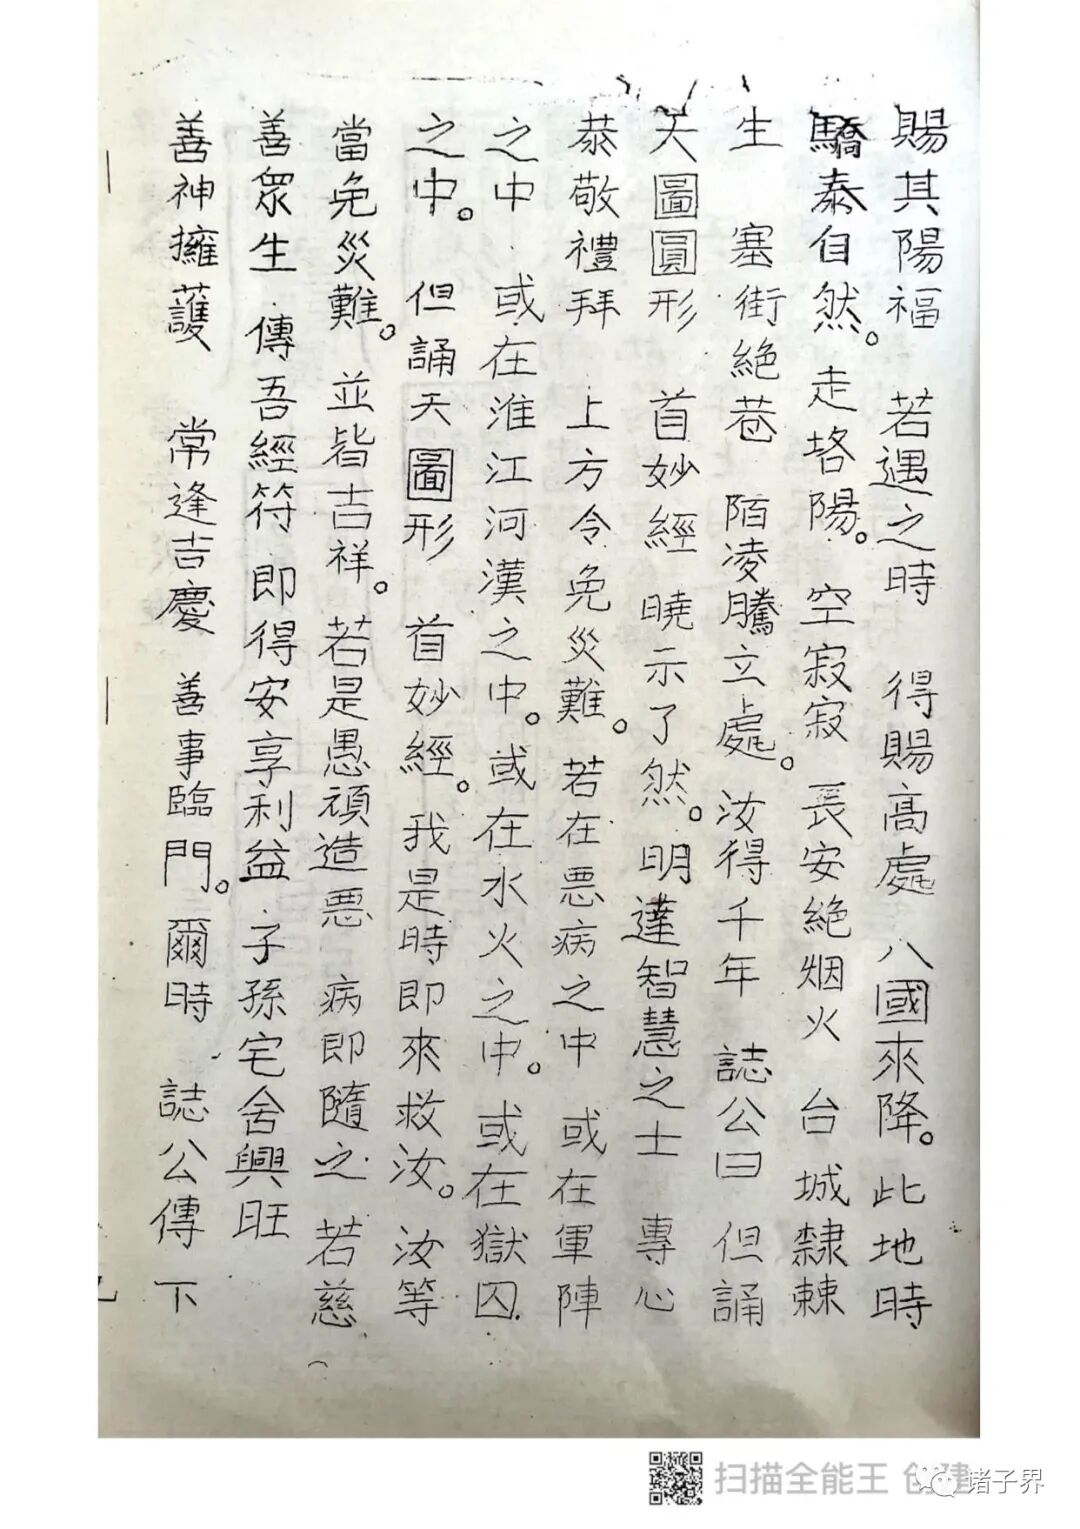 賜其陽福　若遇之時　得賜高處　八國來降。此地時
驕泰自然。走垎陽。空寂寂　長安絶烟火　台城隸棘
生　塞街絶巷　陌凌騰立處。汝得千年　誌公曰　但誦
天圖圓形　首妙經　曉示了然。明達智慧之士　專心
恭敬禮拜　上方令免災難。若在悪病之中　或在軍陣
之中　或在淮江河漢之中。或在水火之中。或在獄囚
之中。但誦天圖形　首妙經。我是時即來救汝。汝等
當免災難。並皆吉祥。若是愚頑造悪　病即隨之　若慈
善眾生　傳吾經符　即得安享利益　子孫宅舍興旺
善神擁護　常逢吉慶　善事臨門。爾時　誌公傳下
扫描全能王 创建
诸子界